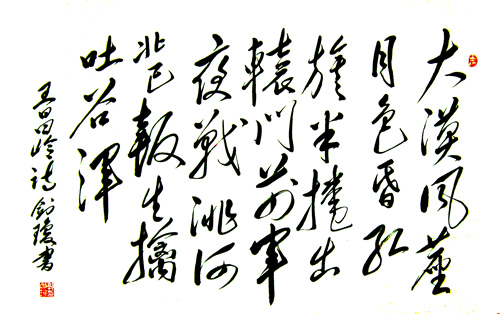 大漠風塵
日色昏紅
旗半捲出
轅門前軍
夜戰洮河
北已報生擒
吐谷渾
王昌齡詩 瓊書